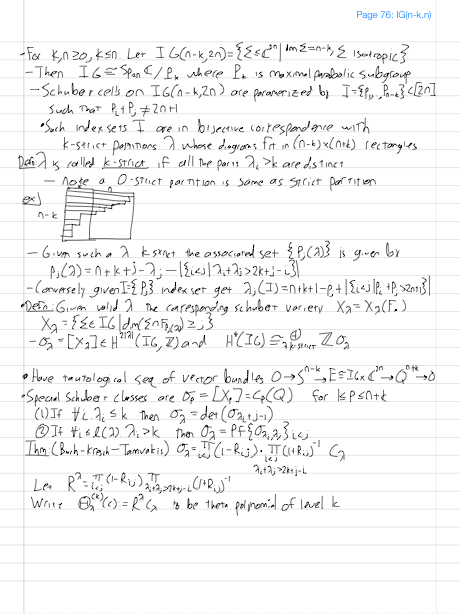 Page 76: IG(n-k,n)
- For k,n≥0, k≤n. Let IG(n-k,2n)={Σ≤ℂ²ⁿ | dim Σ=n-k, Σ isotropic}
- Then IG ≅ Sp₂ₙ ℂ/P_k where P_k is maximal parabolic subgroup
- Schubert cells on IG(n-k,2n) are parametrized by I={p₁,..,p_{n-k}}⊂[2n]
such that p_i+p_j≠2n+1
• Such index sets I are in bijective correspondence with
k-strict partitions λ whose diagrams fit in (n-k)×(n+k) rectangles
Defn: λ is called k-strict if all the parts λ_i>k are distinct
- note a 0-strict partition is same as strict partition
ex)
n-k
- Given such a λ k-strict the associated set {p_j(λ)} is given by
p_j(λ)=n+k+j-λ_j-|{i<j|λ_i+λ_j>2k+j-i}|
- Conversely given I={p_j} index set get λ_j(I)=n+k+1-p_j+|{i<j|p_i+p_j>2n+1}|
• Defn: Given valid λ the corresponding schubert variety X_λ=X_λ(F.)
X_λ={Σ∈IG|dim(Σ∩F_{p_j(λ)})≥j}
- σ_λ=[X_λ]∈H^{2|λ|}(IG,ℤ) and H*(IG)≅⊕_{λ k-strict} ℤσ_λ
• Have tautological seq of vector bundles 0→S^{n-k}→E=IG×ℂ²ⁿ→Q^{n+k}→0
• Special Schubert classes are σ_p=[X_p]=c_p(Q) for 1≤p≤n+k
(1) If ∀i λ_i≤k then σ_λ=det(σ_{λ_i+j-i})
(2) If ∀i≤l(λ) λ_i>k then σ_λ=Pf{σ_{λ_i,λ_j}}_{i<j}
Thm: (Buch-Kresch-Tamvakis) σ_λ=∏_{i<j}(1-R_{ij})·∏_{i<j λ_i+λ_j>2k+j-i}(1+R_{ij})⁻¹ c_λ
Let R^λ=∏_{i<j}(1-R_{ij})∏_{λ_i+λ_j>2k+j-i}(1+R_{ij})⁻¹
Write Θ_λ^{(k)}(c):=R^λ c_λ to be theta polynomial of level k